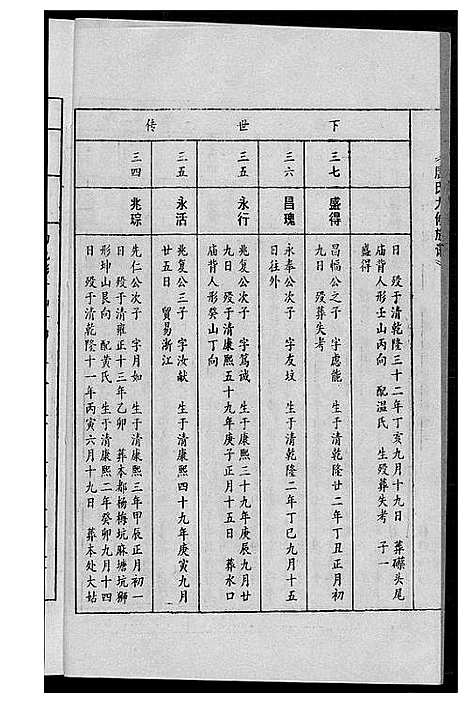 氏九修族谱》
下世传
日 殁于清乾隆三十二年丁亥九月十九日 葬磜头尾
庙背人形壬山丙向 配温氏 生殁葬失考 子一
盛得
三七 盛得
昌幅公之子 字虑能 生于清乾隆廿二年丁丑正月初
九日 殁葬失考
三六 昌瑰
永奉公次子 字友坟 生于清乾隆二年丁巳九月十五
日往外
三五 永行
兆复公次子 字笃诚 生于康熙三十九年庚辰九月廿
九日 殁于清康熙五十九年庚子正月十五日 葬水口
庙背人形癸山丁向
三五 永活
兆复公三子 字汝献 生于清康熙四十九年庚寅九月
廿五日 贸易浙江
三四 兆琮
先仁公次子 字月如 生于清康熙三年甲辰正月初一
日 殁于清雍正十三年乙卯 葬本都杨梅坑麻塘坑狮
形坤山艮向 配黄氏 生于清康熙二年癸卯九月十四
日 殁于清乾隆十一年丙寅六月十九日 葬本处大姑